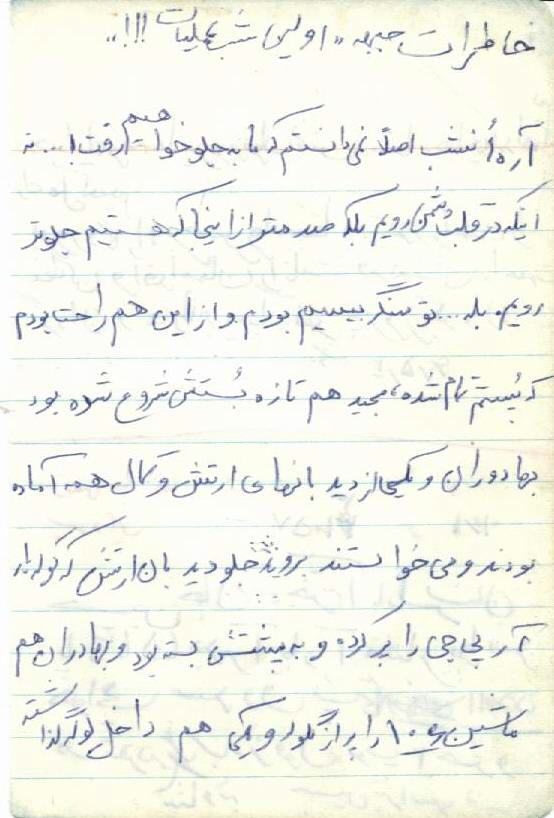 خاطرات جبهه "اولین شب عملیات!!!"
آره اُنشب اصلاً نمی دانستم که ما به جلو خواهیم رفت!... نه
اینکه در قلب دشمن رویم بلکه صد متر از اینجا که هستیم جلوتر
رویم. بله... تو سنگر بیسیم بودم و از این هم راحت بودم
که پُستم تمام شده، مجید هم تازه پُستش شروع شده بود
بهادران و یکی از دیدبانهای ارتش و کمال همه آماده
بودند و می خواستند بروند جلو دیدبان ارتش که گوله
آر پی جی را پر کرده و به پشتش بسته بود و بهادران هم
ماشین ۱۰۶ را پر از گلوله و یکی هم داخل لوله گذاشته